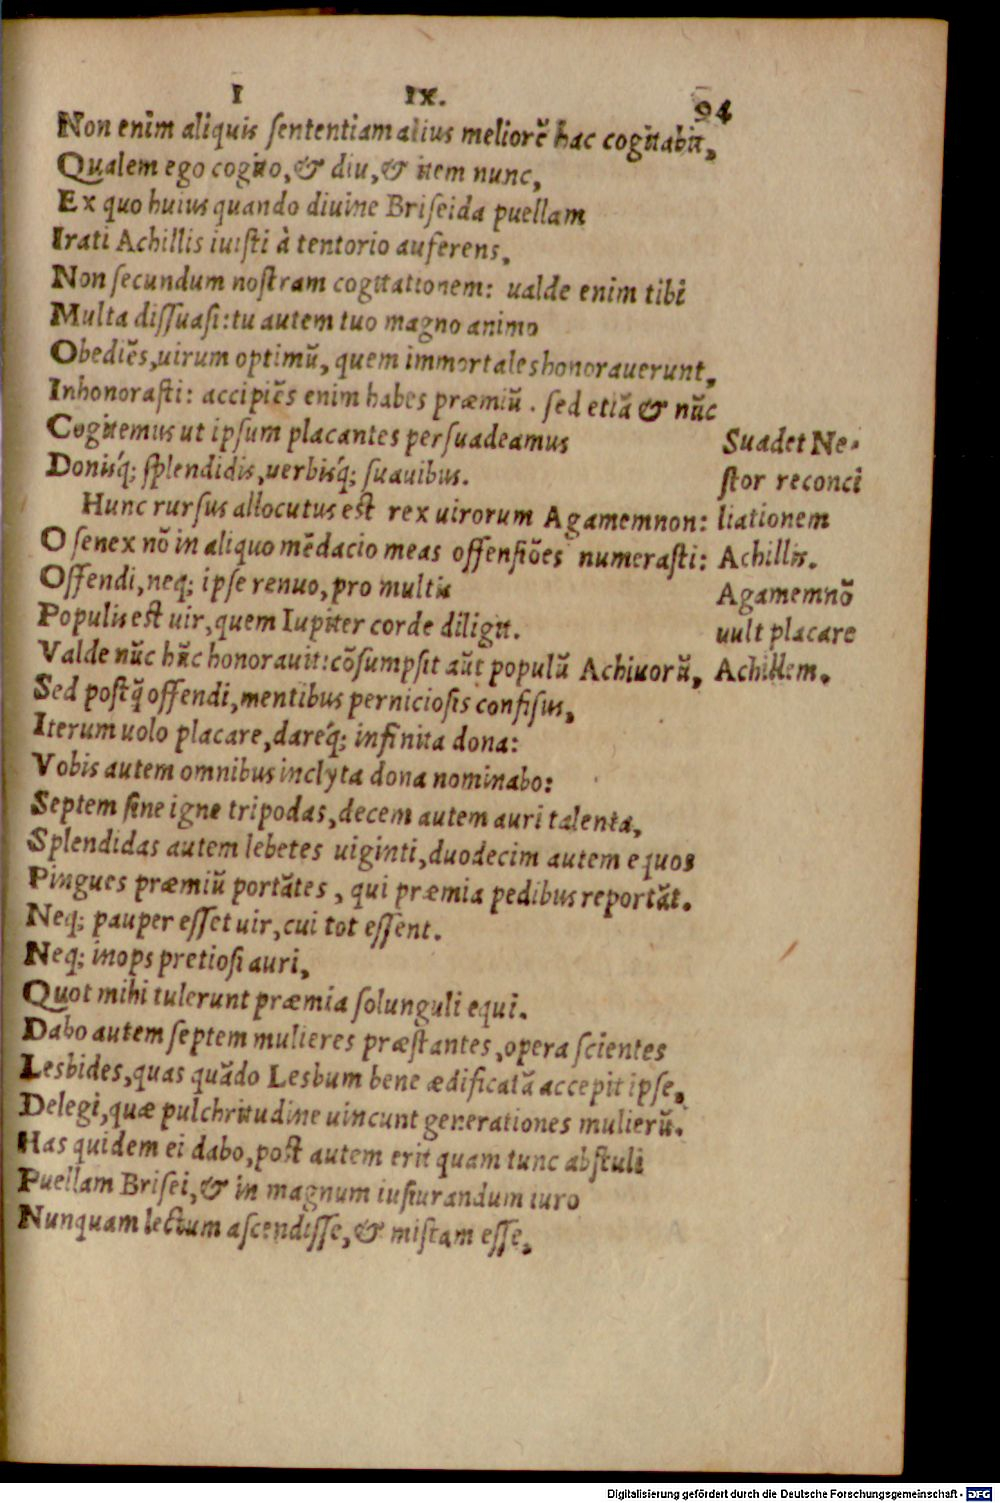 I IX. 94
Non enim aliquis sententiam alius meliorẽ hac cogitabit,
Qualem ego cogito, & diu, & item nunc,
Ex quo huius quando diuine Briseida puellam
Irati Achillis iuisti à tentorio auferens,
Non secundum nostram cogitationem: ualde enim tibi
Multa dissuasi: tu autem tuo magno animo
Obediẽs, uirum optimũ, quem immortales honorauerunt,
Inhonorasti: accipiẽs enim habes præmiũ. sed etiã & nũc
Cogitemus ut ipsum placantes persuadeamus
Donisq́; splendidis, uerbisq́; suauibus.
Hunc rursus allocutus est rex uirorum Agamemnon:
O senex nõ in aliquo mẽdacio meas offensiões numerasti:
Offendi, neq; ipse renuo, pro multis
Populis est uir, quem Iupiter corde diligit.
Valde nũc hũc honorauit: cõsumpsit aũt populũ Achiuorũ,
Sed postq̃ offendi, mentibus perniciosis confisus,
Iterum uolo placare, dareq́; infinita dona:
Vobis autem omnibus inclyta dona nominabo:
Septem sine igne tripodas, decem autem auri talenta,
Splendidas autem lebetes uiginti, duodecim autem equos
Pingues præmiũ portãtes, qui præmia pedibus reportãt.
Neq; pauper esset uir, cui tot essent.
Neq; inops pretiosi auri,
Quot mihi tulerunt præmia solunguli equi.
Dabo autem septem mulieres præstantes, opera scientes
Lesbides, quas quãdo Lesbum bene ædificatã accepit ipse,
Delegi, quæ pulchritudine uincunt generationes mulierũ.
Has quidem ei dabo, post autem erit quam tunc abstuli
Puellam Brisei, & in magnum iusiurandum iuro
Nunquam lectum ascendisse, & mistam esse,
Suadet Ne-
stor reconci
liationem
Achillis.
Agamemnõ
uult placare
Achillem.
Digitalisierung gefördert durch die Deutsche Forschungsgemeinschaft - DFG